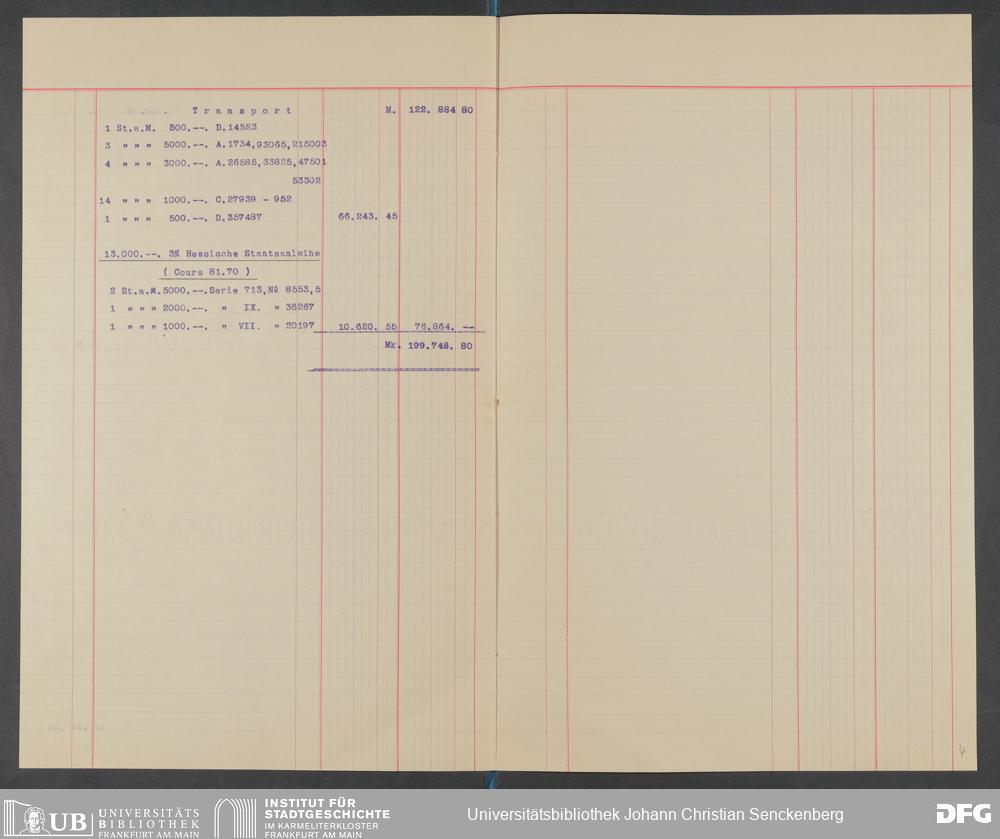 Transport M. 122. 884 80
1 St.a.M. 500.--. D.14523
3 " " " 5000.--. A.1734,93065,215003
4 " " " 3000.--. A.26585,33825,47501
53302
14 " " " 1000.--. C.27939 - 952
1 " " " 500.--. D.357487 66.243. 45
13.000.--. 3% Hessische Staatsanleihe
( Cours 81.70 )
2 St.a.M.5000.--.Serie 713,№ 8553,5
1 " " " 2000.--. " IX. " 36267
1 " " " 1000.--. " VII. " 20197 10.620. 55 76.864. --
Mk. 199.748. 80
4
UB UNIVERSITÄTS
BIBLIOTHEK
FRANKFURT AM MAIN
INSTITUT FÜR
STADTGESCHICHTE
IM KARMELITERKLOSTER
FRANKFURT AM MAIN
Universitätsbibliothek Johann Christian Senckenberg
DFG